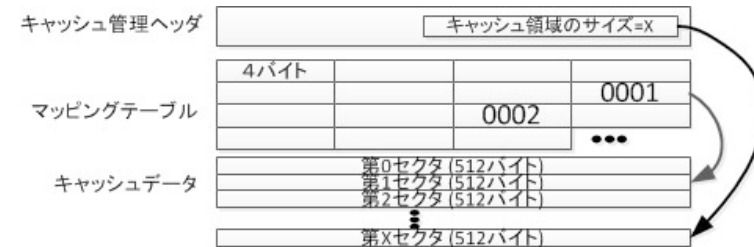 キャッシュ管理ヘッダ
キャッシュ領域のサイズ=X
4バイト
マッピングテーブル
0001
0002
•••
キャッシュデータ
第0セクタ(512バイト)
第1セクタ(512バイト)
第2セクタ(512バイト)
第Xセクタ(512バイト)